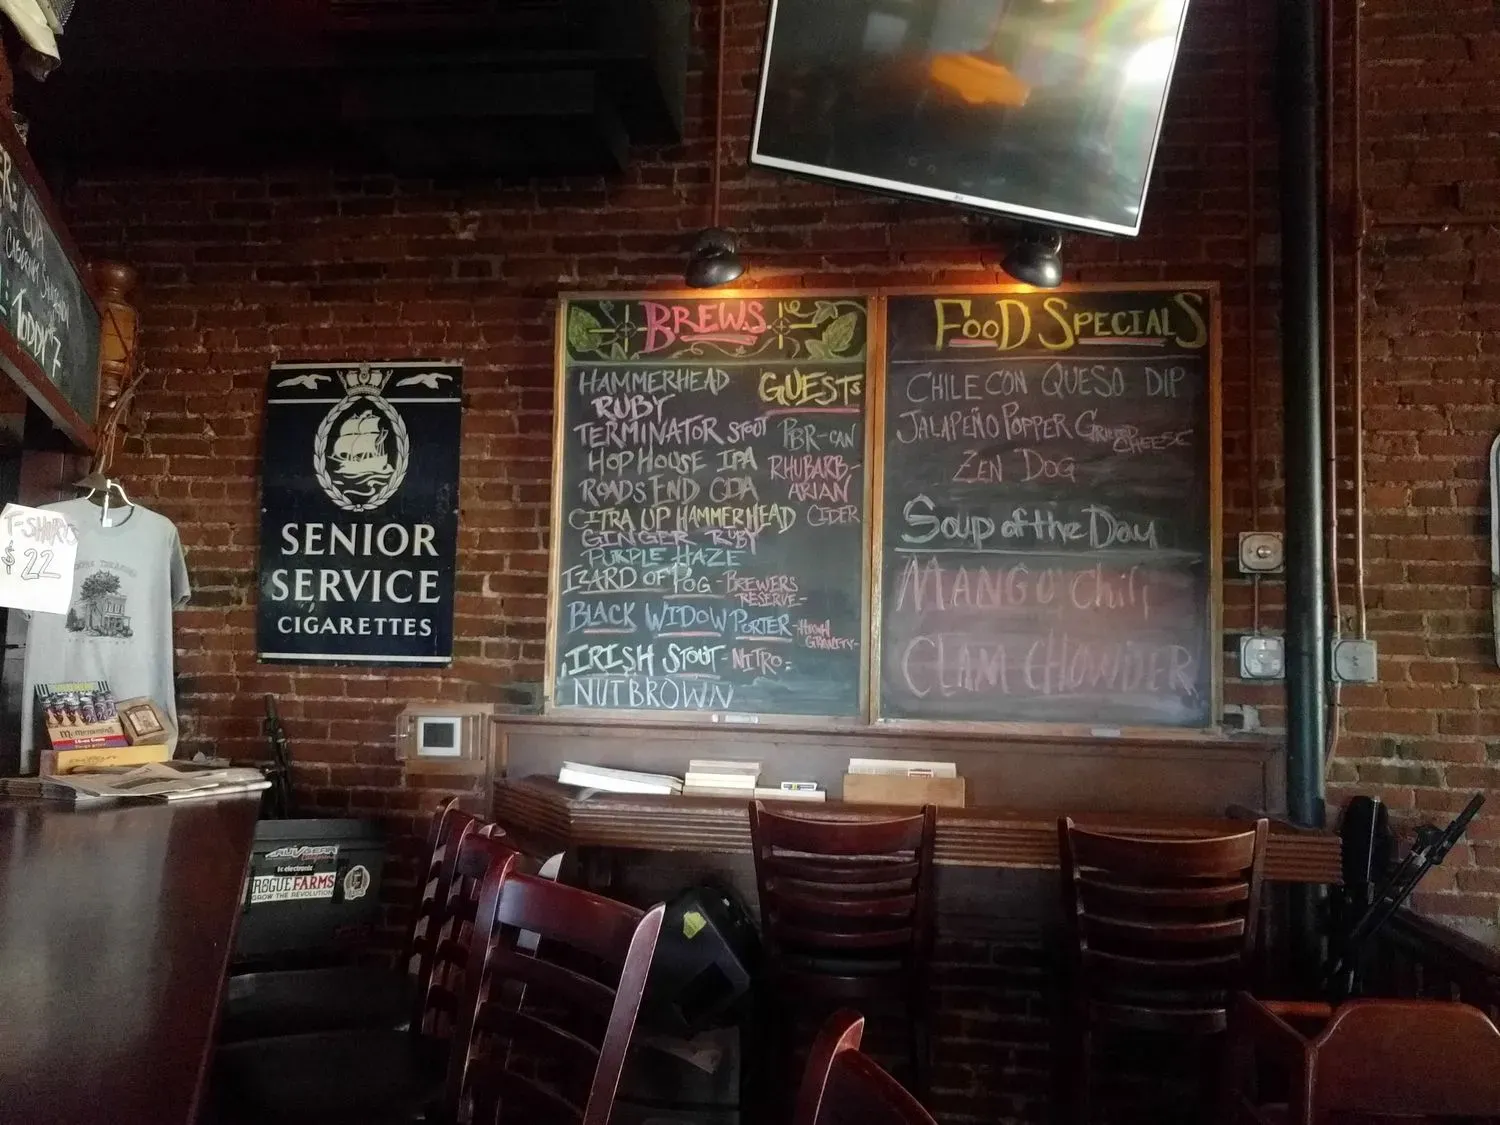 CABERNET SAUVIGNON
TODDY $7
T-SHIRTS
$22
SENIOR
SERVICE
CIGARETTES
BREWS
HAMMERHEAD
RUBY
TERMINATOR STOUT
HOP HOUSE IPA
ROADS END CDA
CITRA UP HAMMERHEAD
GINGER RUBY
PURPLE HAZE
IZARD OF POG - BREWERS
RESERVE -
BLACK WIDOW PORTER - HIGH
GRAVITY -
IRISH STOUT - NITRO -
NUTBROWN
GUESTS
PBR-CAN
RHUBARB-
ARIAN
CIDER
FOOD SPECIALS
CHILE CON QUESO DIP
JALAPEÑO POPPER GRILLED
CHEESE
ZEN DOG
Soup of the Day
MANGO Chili
CLAM CHOWDER
McMenamins
ROGUE FARMS
GROW THE REVOLUTION